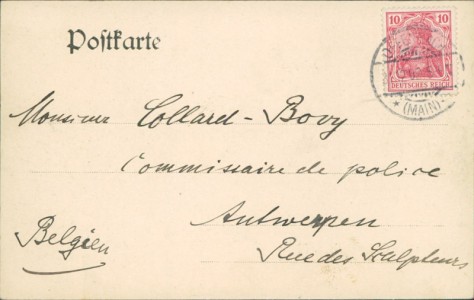 Postkarte
10 10
DEUTSCHES REICH
* (MAIN)
Monsieur Collard-Bovy
Commissaire de police
Antwerpen
Belgien
Rue des Sculpteurs